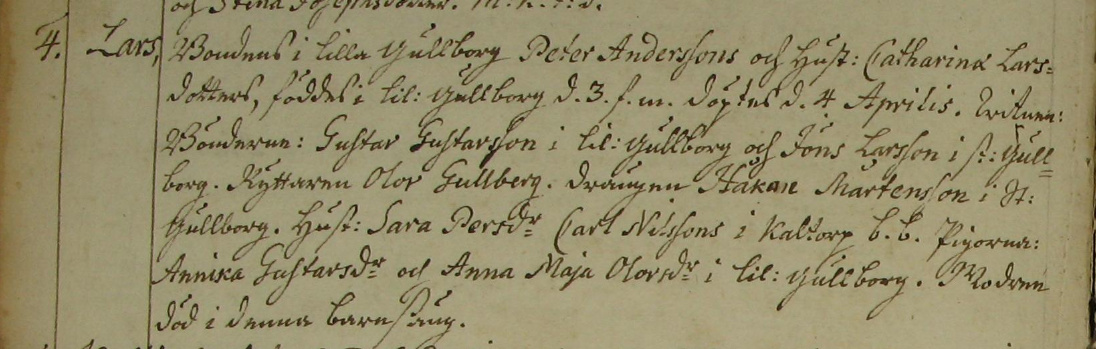 och Stina Josephsdotter. M. K. i. d.
4. Lars, Bondens i Lilla Gullborg Peter Anderssons och Hust: Catharina Lars=
dotters, föddes i Lil: Gullborg d. 3. f. m. döptes d. 4 Aprilis. Witnen:
Bönderne: Gustav Gustavsson i Lil: Gullborg och Jöns Larsson i St: Gull=
borg. Ryttaren Olov Gullberg. Drängen Håkan Mårtensson i St:
Gullborg. Hust: Sara Persdr Carl Nilssons i Kaltorp b. b. Pigorna:
Annika Gustavsdr och Anna Maja Olovsdr i Lil: Gullborg. Modren
död i denna barnsäng.